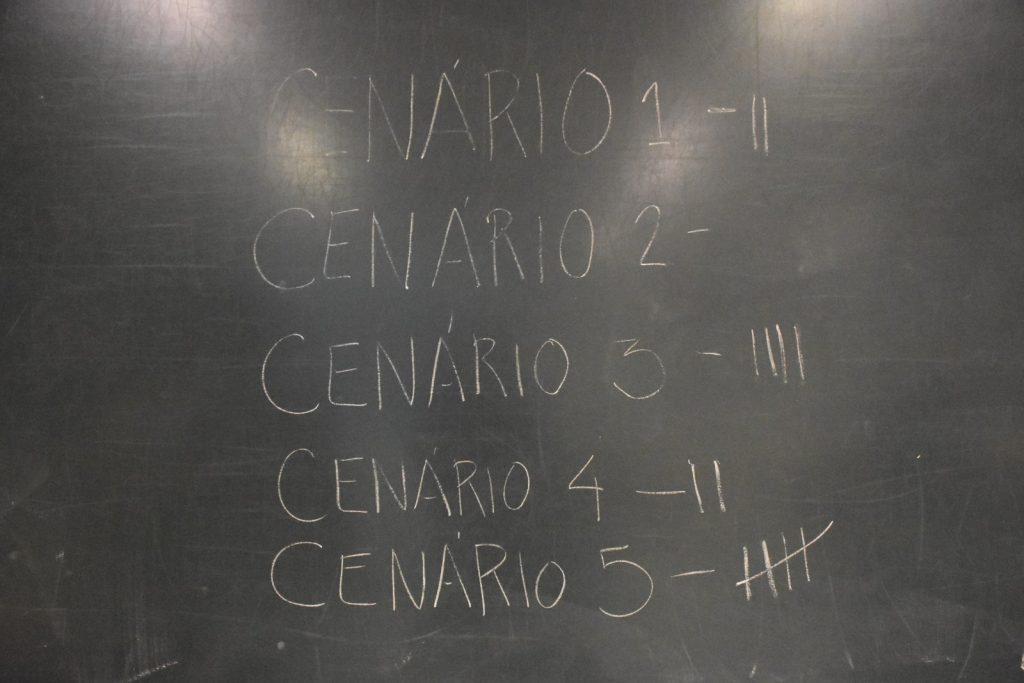 CENÁRIO 1 - II
CENÁRIO 2 -
CENÁRIO 3 - IIII
CENÁRIO 4 - II
CENÁRIO 5 - 卌